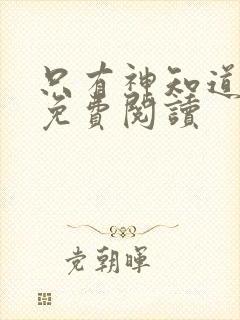 只有神知道
免費閱讀
党朝暉